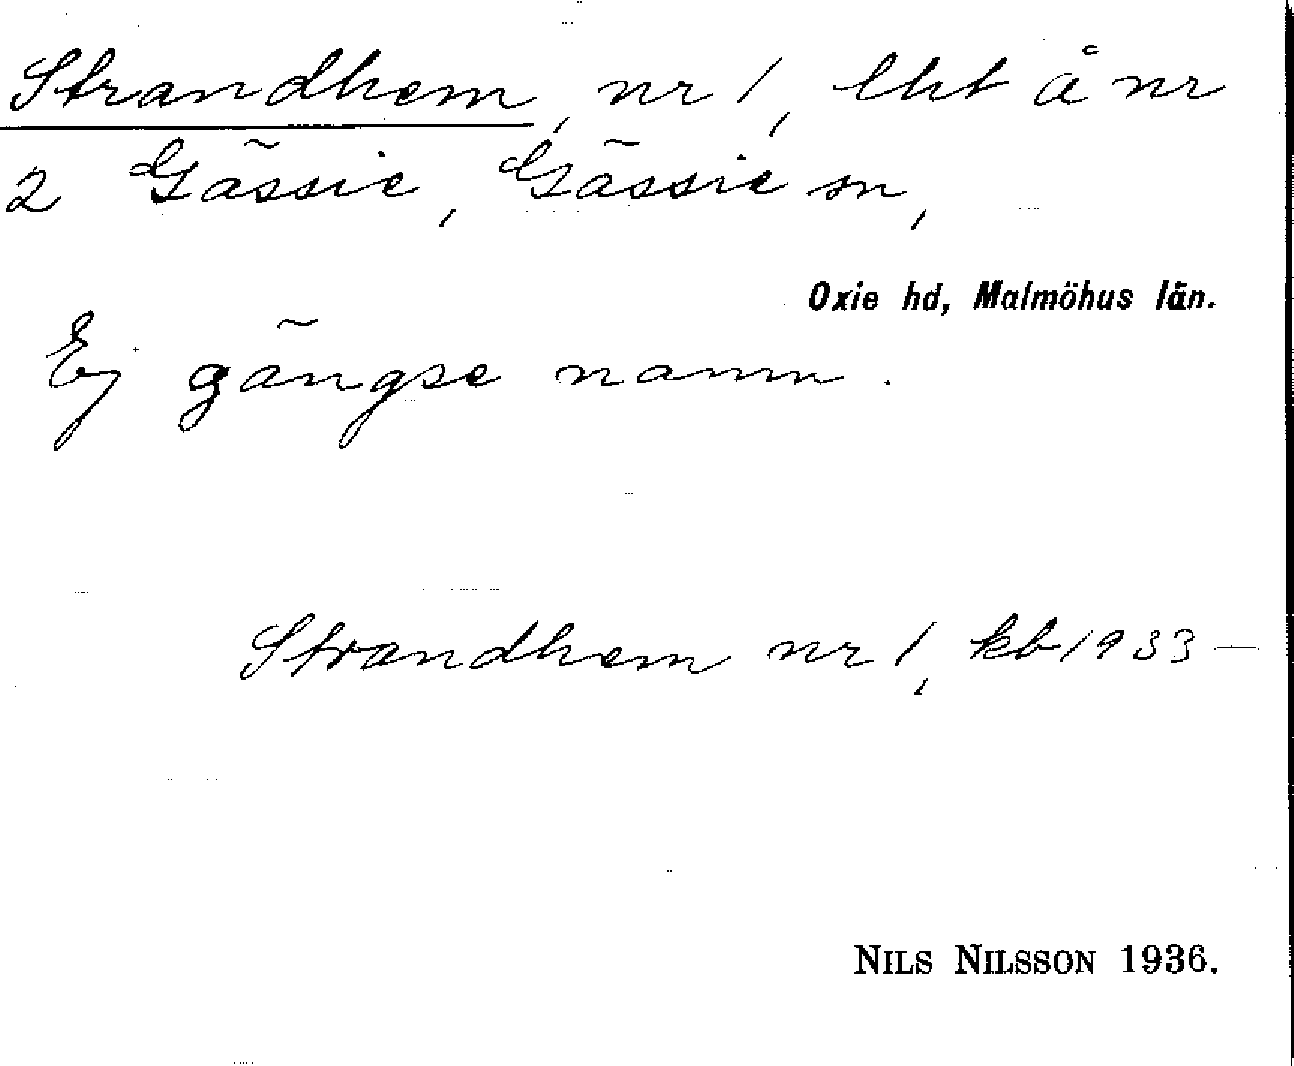 Strandhem, nr 1, lht å nr
2 Gässie, Gässie sn,
Oxie hd, Malmöhus län.
Ej gängse namn.
Strandhem nr 1, kb 1933–
NILS NILSSON 1936.